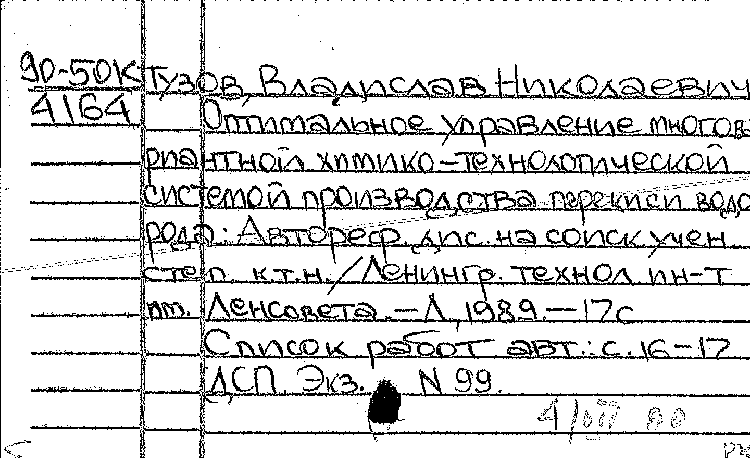 90-50К Тузов, Владислав Николаевич
4164 Оптимальное управление многова
риантной химико-технологической
системой производства перекиси водо
рода: Автореф. дис. на соиск. учен.
степ. к.т.н. / Ленингр. технол. ин-т
им. Ленсовета. – Л, 1989. – 17с
Список работ авт.: с. 16–17
ДСП. Экз. N 99.